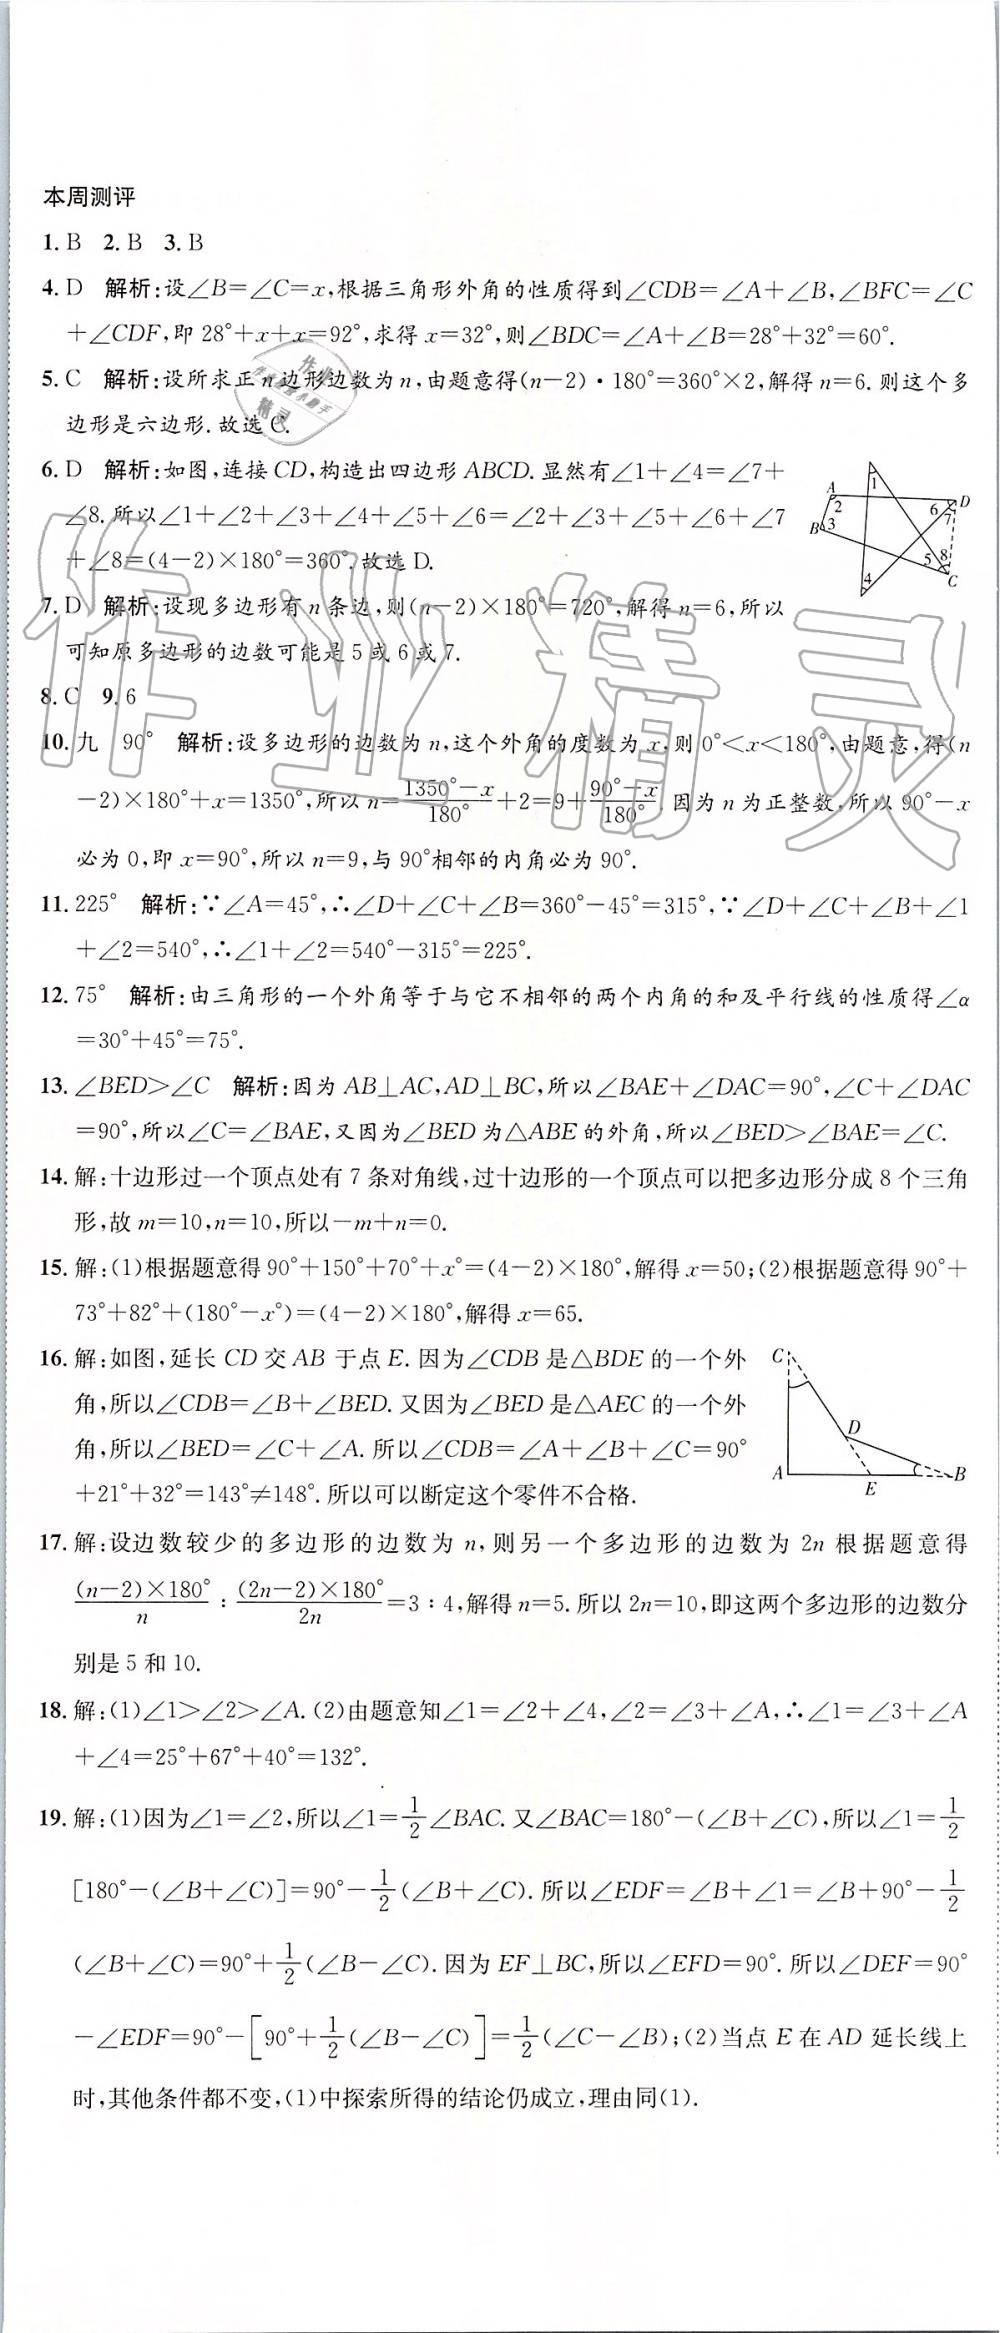 本周测评
1. B 2. B 3. B
4. D 解析:设∠B=∠C=x,根据三角形外角的性质得到∠CDB=∠A+∠B,∠BFC=∠C
+∠CDF,即 28°+x+x=92°,求得 x=32°,则∠BDC=∠A+∠B=28°+32°=60°.
5. C 解析:设所求正n边形边数为n,由题意得(n-2)·180°=360°×2,解得n=6.则这个多
边形是六边形.故选C.
6. D 解析:如图,连接CD,构造出四边形ABCD.显然有∠1+∠4=∠7+
∠8.所以∠1+∠2+∠3+∠4+∠5+∠6=∠2+∠3+∠5+∠6+∠7
+∠8=(4-2)×180°=360°.故选D.
A 1 2 B 3 4 5 6 7 8 D C
7. D 解析:设现多边形有n条边,则(n-2)×180°=720°,解得n=6,所以
可知原多边形的边数可能是5或6或7.
8. C 9. 6
10. 九 90° 解析:设多边形的边数为n,这个外角的度数为x,则0°<x<180°,由题意,得(n
-2)×180°+x=1350°,所以n=\frac{1350°-x}{180°}+2=9+\frac{90°-x}{180°}.因为n为正整数,所以90°-x
必为0,即x=90°,所以n=9,与90°相邻的内角必为90°.
11. 225° 解析:∵∠A=45°,∴∠D+∠C+∠B=360°-45°=315°,∵∠D+∠C+∠B+∠1
+∠2=540°,∴∠1+∠2=540°-315°=225°.
12. 75° 解析:由三角形的一个外角等于与它不相邻的两个内角的和及平行线的性质得∠α
=30°+45°=75°.
13. ∠BED>∠C 解析:因为AB⊥AC,AD⊥BC,所以∠BAE+∠DAC=90°,∠C+∠DAC
=90°,所以∠C=∠BAE,又因为∠BED为△ABE的外角,所以∠BED>∠BAE=∠C.
14. 解:十边形过一个顶点处有7条对角线,过十边形的一个顶点可以把多边形分成8个三角
形,故m=10,n=10,所以-m+n=0.
15. 解:(1)根据题意得90°+150°+70°+x°=(4-2)×180°,解得x=50;(2)根据题意得90°+
73°+82°+(180°-x°)=(4-2)×180°,解得x=65.
16. 解:如图,延长CD交AB于点E.因为∠CDB是△BDE的一个外
角,所以∠CDB=∠B+∠BED.又因为∠BED是△AEC的一个外
角,所以∠BED=∠C+∠A.所以∠CDB=∠A+∠B+∠C=90°
+21°+32°=143°≠148°.所以可以断定这个零件不合格.
C D A E B
17. 解:设边数较少的多边形的边数为n,则另一个多边形的边数为2n根据题意得
\frac{(n-2)×180°}{n}:\frac{(2n-2)×180°}{2n}=3:4,解得n=5.所以2n=10,即这两个多边形的边数分
别是5和10.
18. 解:(1)∠1>∠2>∠A.(2)由题意知∠1=∠2+∠4,∠2=∠3+∠A,∴∠1=∠3+∠A
+∠4=25°+67°+40°=132°.
19. 解:(1)因为∠1=∠2,所以∠1=\frac{1}{2}∠BAC.又∠BAC=180°-(∠B+∠C),所以∠1=\frac{1}{2}
[180°-(∠B+∠C)]=90°-\frac{1}{2}(∠B+∠C).所以∠EDF=∠B+∠1=∠B+90°-\frac{1}{2}
(∠B+∠C)=90°+\frac{1}{2}(∠B-∠C).因为EF⊥BC,所以∠EFD=90°.所以∠DEF=90°
-∠EDF=90°-[90°+\frac{1}{2}(∠B-∠C)]=\frac{1}{2}(∠C-∠B);(2)当点E在AD延长线上
时,其他条件都不变,(1)中探索所得的结论仍成立,理由同(1).
作业精灵